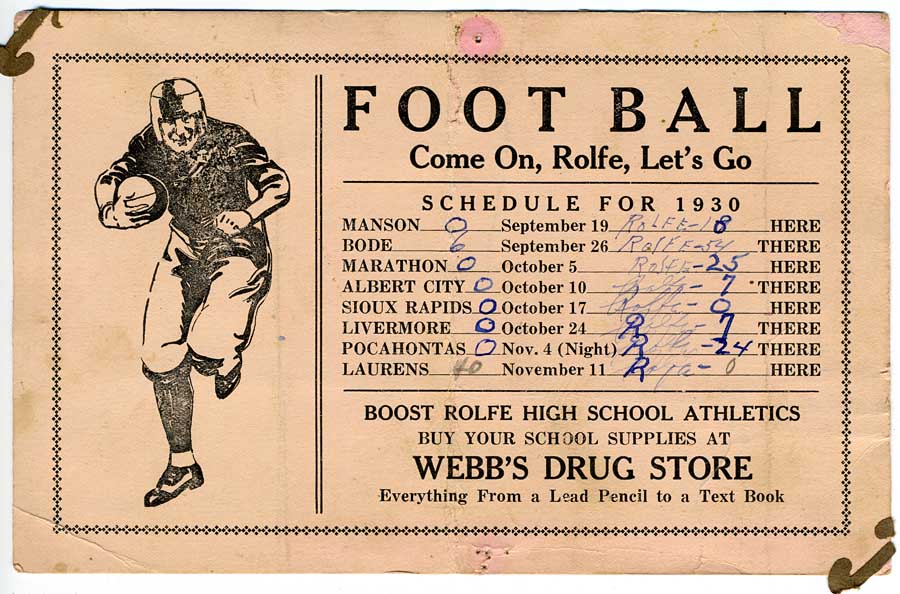 FOOT BALL
Come On, Rolfe, Let's Go
SCHEDULE FOR 1930
MANSON 0 September 19 ROLFE-18 HERE
BODE 6 September 26 ROLFE-54 THERE
MARATHON 0 October 5 ROLFE-25 HERE
ALBERT CITY 0 October 10 - 7 THERE
SIOUX RAPIDS 0 October 17 Rolfe- 0 HERE
LIVERMORE 0 October 24 R - 7 THERE
POCAHONTAS 0 Nov. 4 (Night) R -24 THERE
LAURENS 40 November 11 R - 0 HERE
BOOST ROLFE HIGH SCHOOL ATHLETICS
BUY YOUR SCHOOL SUPPLIES AT
WEBB'S DRUG STORE
Everything From a Lead Pencil to a Text Book